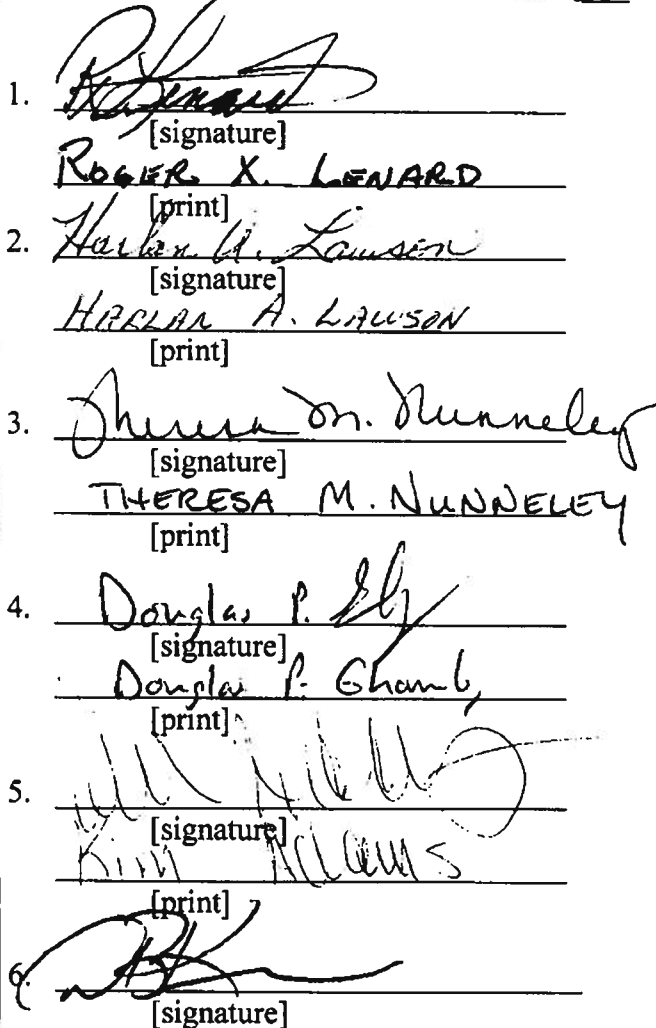 1.
[signature]
ROGER X. LENARD
[print]
2. Harlan A. Lawson
[signature]
HARLAN A. LAWSON
[print]
3. Theresa M. Nunneley
[signature]
THERESA M. NUNNELEY
[print]
4. Douglas P.
[signature]
Douglas P.
[print]
5.
[signature]
Kim
[print]
6.
[signature]